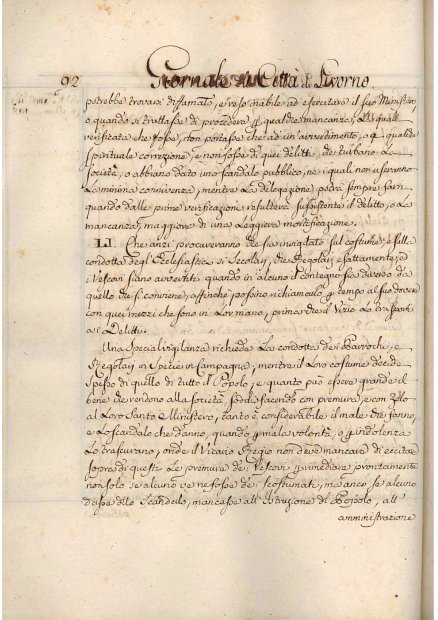 92 Giornale della Città di Livorno
potrebbe trovarsi diffamato, e reso inabile ad esercitare il suo Ministero
o quando si trattasse di procedere p qualche mancanza, la quale
verificata che fosse, non portasse che ad un avvertimento, o p qualche
spirituale correzione, e non fosse di quei delitti, che turbano La
Società, o abbiano dato uno scandalo pubblico, ne i quali non useranno
La minima connivenza, mentre La delegazione potrà sempre farsi
quando dalle prime verificazioni resulterà sussistente il delitto, o La
mancanza, maggiore di una Leggiera mortificazione.
LI. Che anzi procureranno che sia invigilato sul costume, e sulla
condotta degl'Ecclesiastici sì Secolari, che Regolari esattamente, ed
i Vescovi siano avvertiti quando in alcuno il contegno sia diverso da
quello che si conviene, affinchè possano richiamarlo p tempo al suo dovere
con quei mezzi che sono in Lor mano, prima che il Vizio Lo trasporti
a i Delitti.
Una special vigilanza richiede La condotta de i Parrochi, e
Regolari in specie in Campagna, mentre il Loro costume decide
spesso di quello di tutto il Popolo, e quanto può essere grande il
bene che rendono alla società soddisfacendo con premura, e con Zelo
al Loro Santo Ministero, tanto è considerabile il male che fanno,
e Lo scandalo che danno, quando p mala volontà, o p indolenza
Lo trascurano, onde il Vicario Regio non deve mancare di eccitare
sopra di questi Le premure de i Vescovi p rimediare prontamente
non solo se alcuno ve ne fosse de i scostumati, ma anco se alcuno
desse dello Scandolo, mancasse all'Istruzione del Popolo, all'
amministrazione